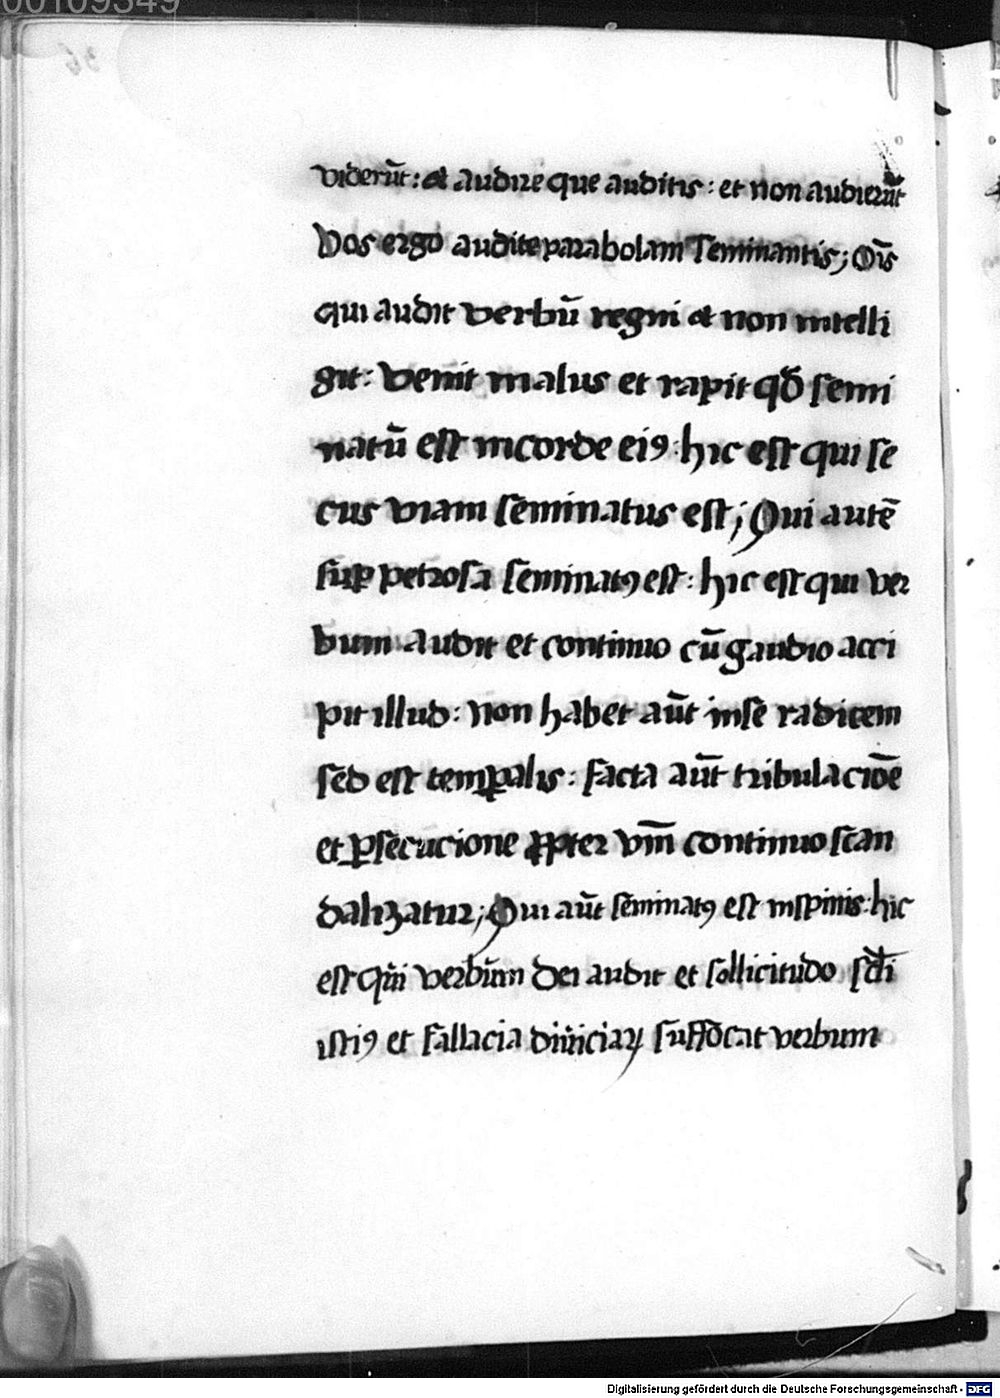 00109349
viderūt: et audire que auditis: et non audierūt
Vos ergo audite parabolam Seminantis; Oīs
qui audit verbū regni et non intelli
git: venit malus et rapit qd̄ semi
natū est incorde eiꝰ: hic est qui se
cus viam seminatus est; Qui autē
sup̄ petrosa seminatꝰ est: hic est qui ver
bum audit et continuo cū gaudio acci
pit illud: Non habet aūt inse radicem
sed est temꝑalis: facta aūt tribulacioē
et ꝑsecucione ꝓpter vm̄ continuo scan
dalizatur; Qui aūt seminatꝰ est inspinis: hic
est qui verbum dei audit et sollicitudo scl̄i
istiꝰ et fallacia diuiciaꝝ suffocat verbum
Digitalisierung gefördert durch die Deutsche Forschungsgemeinschaft - DFG